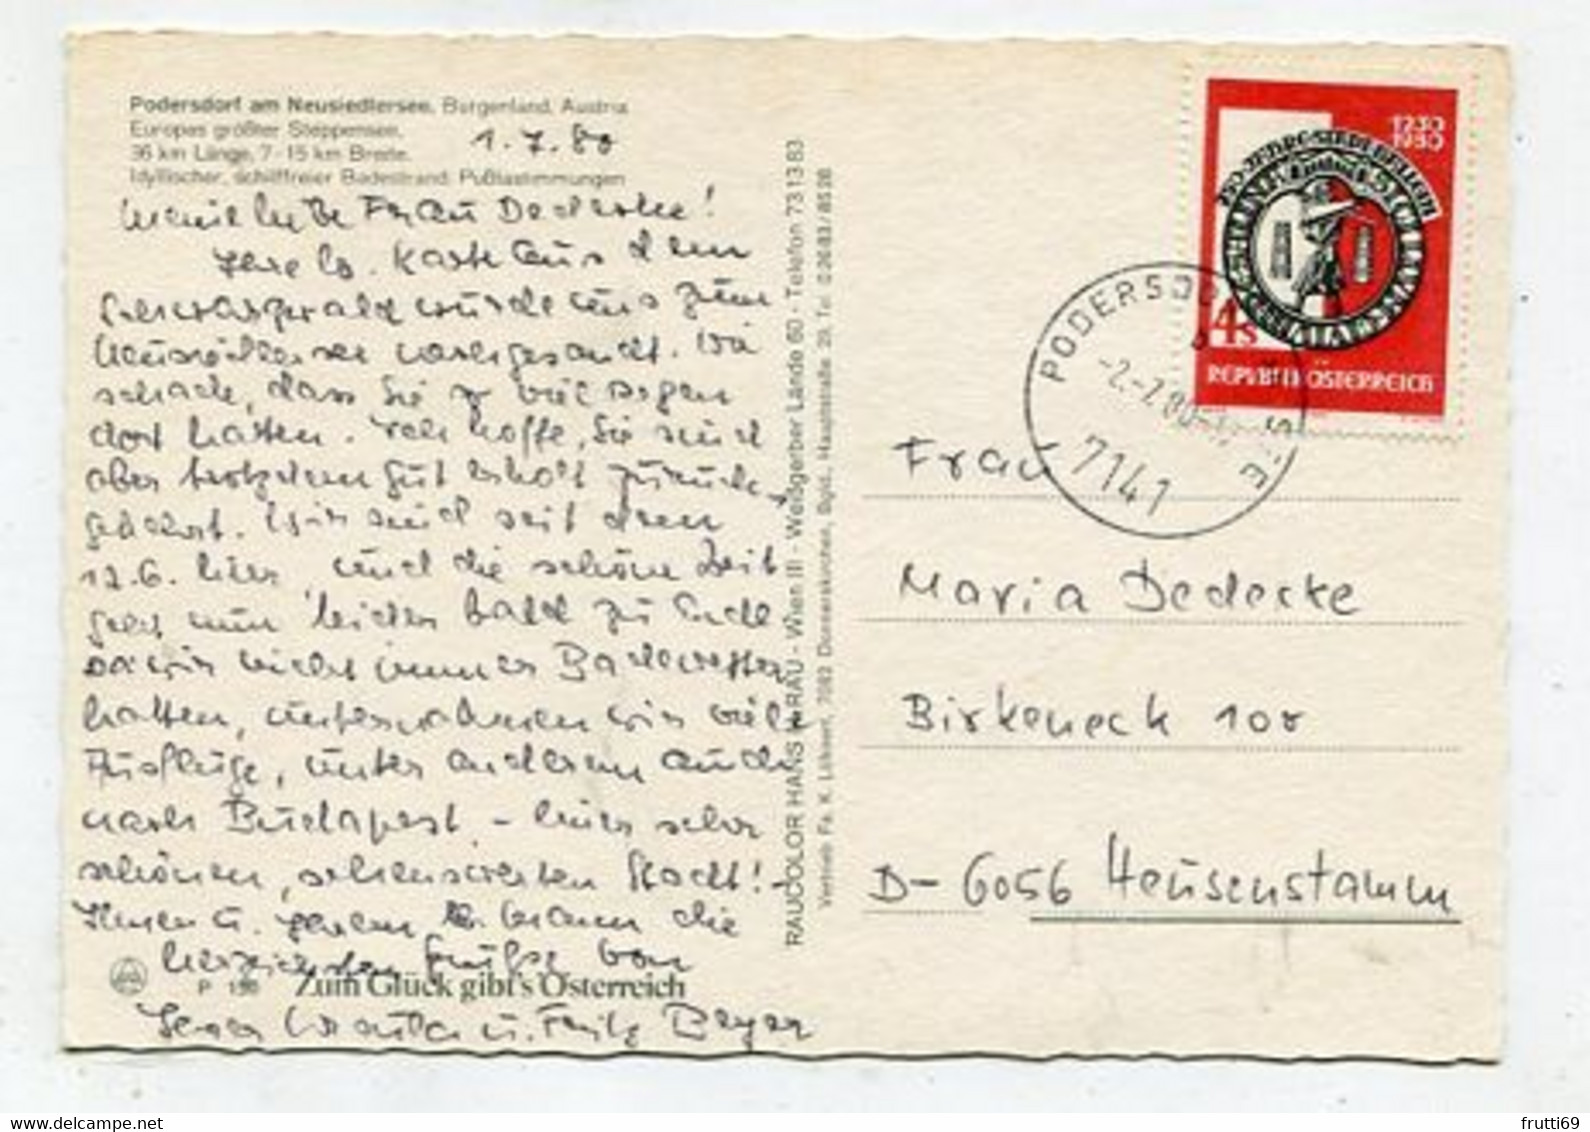 Podersdorf am Neusiedlersee, Burgenland, Austria
Europas größter Steppensee,
36 km Länge, 7-15 km Breite.
Idyllischer, schilffreier Badestrand. Pußtastimmungen
1.7.80
Meine liebe Frau Dedecke!
Ihre lb. Karte aus dem
Schwarzwald wurde uns zum
Neusiedlersee nachgesandt. Wie
schade, dass Sie so viel Regen
dort hatten. Ich hoffe, Sie sind
aber trotzdem gut erholt zurück-
gekehrt. Wir sind seit dem
12.6. hier, und die schöne Zeit
geht nun leider bald zu Ende.
Da wir nicht immer Badewetter
hatten, unternahmen wir viele
Ausflüge, unter anderem auch
nach Budapest - einer sehr
schönen, sehenswerten Stadt! -
Ihnen u. Ihrem Mann die
herzlichsten Grüße von
Ihrer u. Fritz Beyer
P 150 Zum Glück gibt's Österreich
RAUCOLOR HANS RAU - Wien III - Weißgerber Lände 60 - Telefon 73 13 83
Vertrieb Fa. K. Lokvert, 7082 Donnerskirchen, Bgld., Hauptstraße 29, Tel. 02683/8528
1230
1980
4s
REPUBLIK ÖSTERREICH
PODERSDORF AM SEE
-2.-7.80
7141
Frau
Maria Dedecke
Birkeneck 10
D-6056 Heusenstamm
frutti69